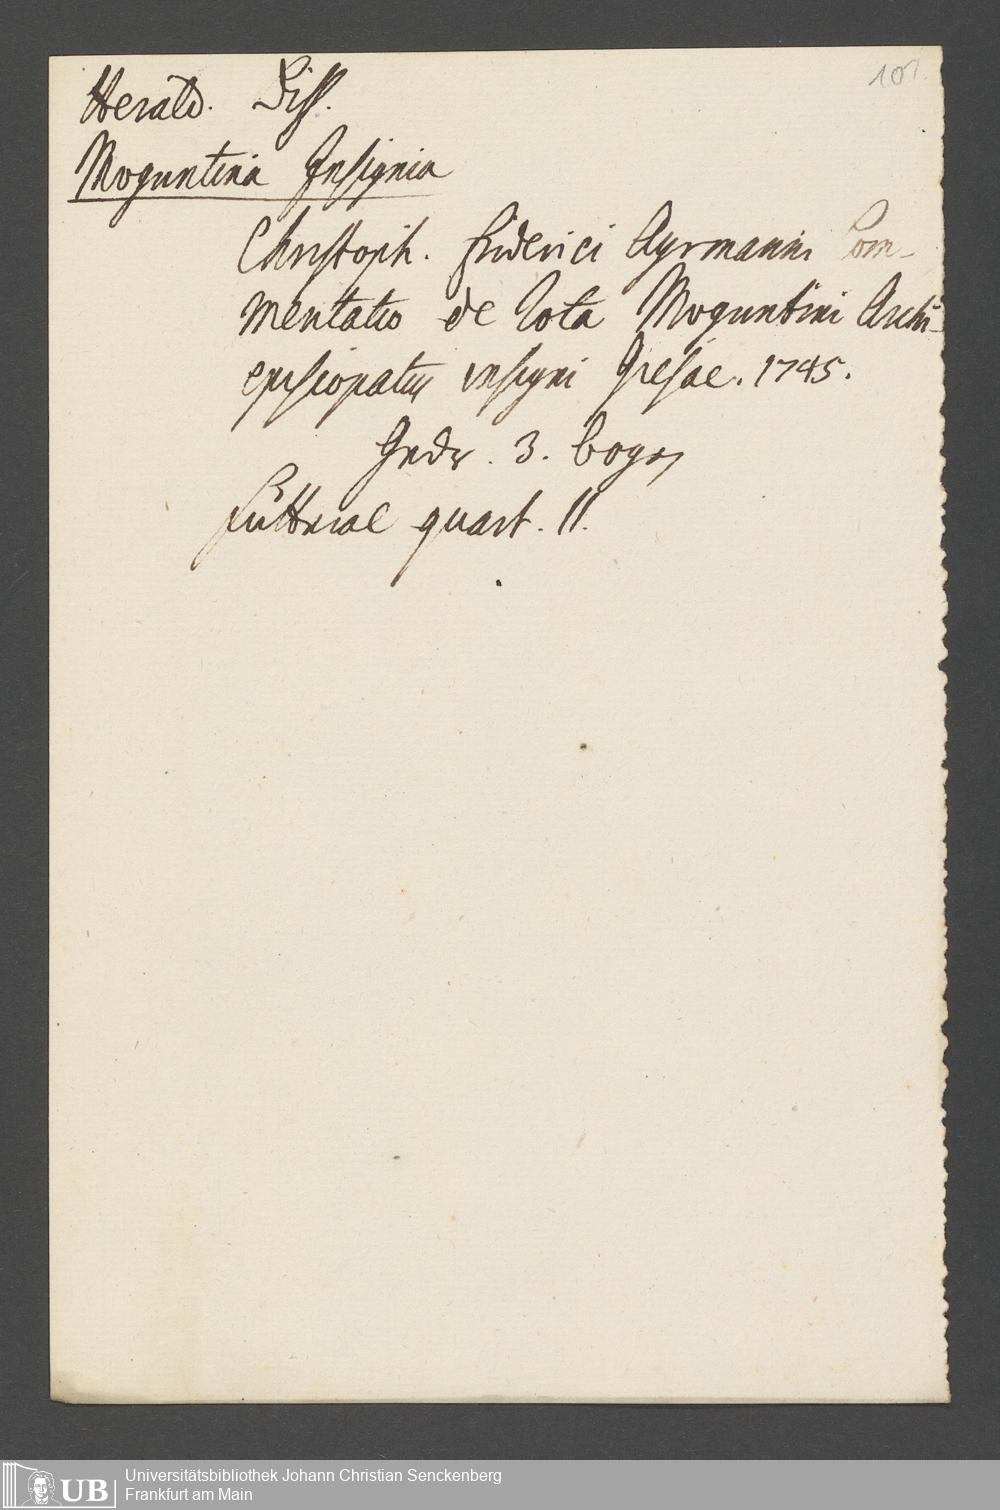 101.
Herald. Diss.
Moguntina Insignia
Christoph. Friderici Ayrmanni Com-
mentatio de Rota Moguntini Archi-
episcopatus insigni Giesae. 1745.
3. bogen
Futteral quart. II.
Universitätsbibliothek Johann Christian Senckenberg
UB Frankfurt am Main